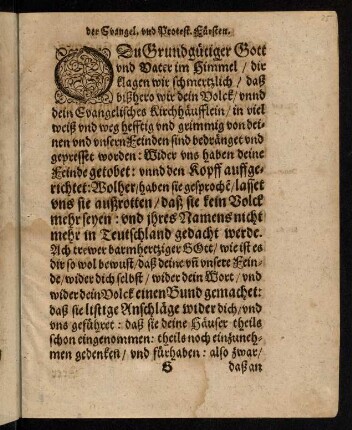 der Evangel. vnd Protest. Fürsten.
O Du Grundgütiger Gott
vnd Vater im Himmel / dir
klagen wir schmertzlich / daß
bißhero wir dein Volck / vnnd
dein Evangelisches Kirchhäufflein / in viel
weiß vnd weg hefftig vnd grimmig von dei-
nen vnd vnsern Feinden sind bedränget vnd
gepresset worden: Wider vns haben deine
Feinde getobet: vnnd den Kopff auffge-
richtet: Wolher / haben sie gesprochē / lasset
vns sie außrotten / daß sie kein Volck
mehr seyen: vnd jhres Namens nicht
mehr in Teutschland gedacht werde.
Ach trewer barmhertziger GOtt / wie ist es
dir so wol bewust / daß deine vñ vnsere Fein-
de / wider dich selbst / wider dein Wort / vnd
wider dein Volck einen Bund gemachet:
daß sie listige Anschläge wider dich / vnd
vns geführet: daß sie deine Häuser theils
schon eingenommen: theils noch einzuneh-
men gedencken / vnd fürhaben: also zwar /
G
daß an